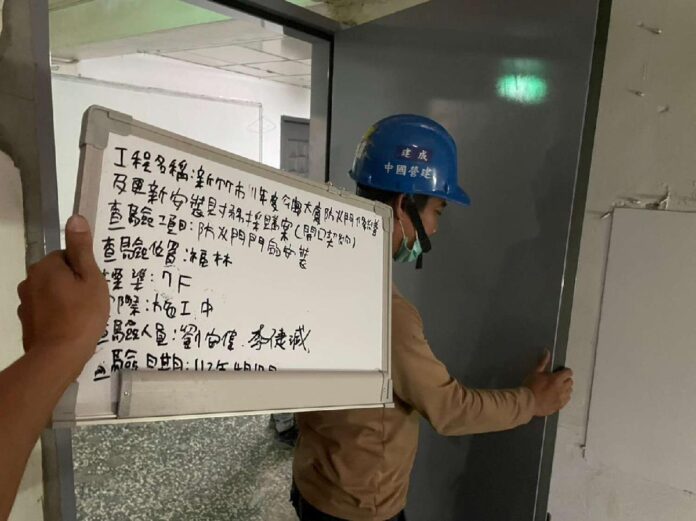 工程名稱:新竹市111年度公寓大廈防火門修繕
及更新安裝財務採購案(開口契約)
查驗項目:防火門門安裝
查驗位置:桂林
標準:7F
實際:施工中
查驗人員:劉 李建誠
查驗日期:112年4月
建成
中國營建